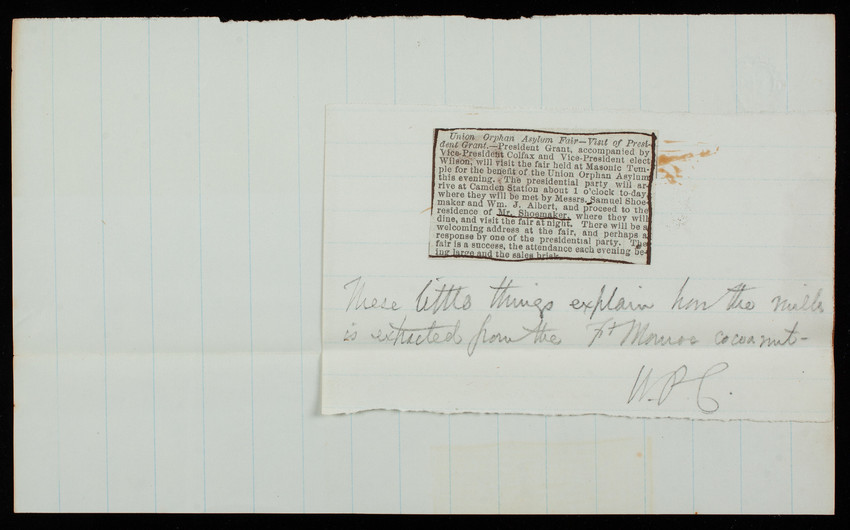 Union Orphan Asylum Fair—Visit of Presi-
dent Grant.—President Grant, accompanied by
Vice-President Colfax and Vice-President elect
Wilson, will visit the fair held at Masonic Tem-
ple for the benefit of the Union Orphan Asylum
this evening. The presidential party will ar-
rive at Camden Station about 1 o'clock to-day,
where they will be met by Messrs. Samuel Shoe-
maker and Wm. J. Albert, and proceed to the
residence of Mr. Shoemaker, where they will
dine, and visit the fair at night. There will be a
welcoming address at the fair, and perhaps a
response by one of the presidential party. The
fair is a success, the attendance each evening be-
ing large and the sales brisk.
These little things explain how the milk
is extracted from the Ft Monroe cocoanut—
W.P.C.